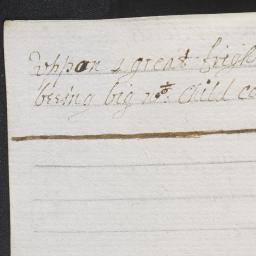 vppon a great frigh
beeing big wt Child co